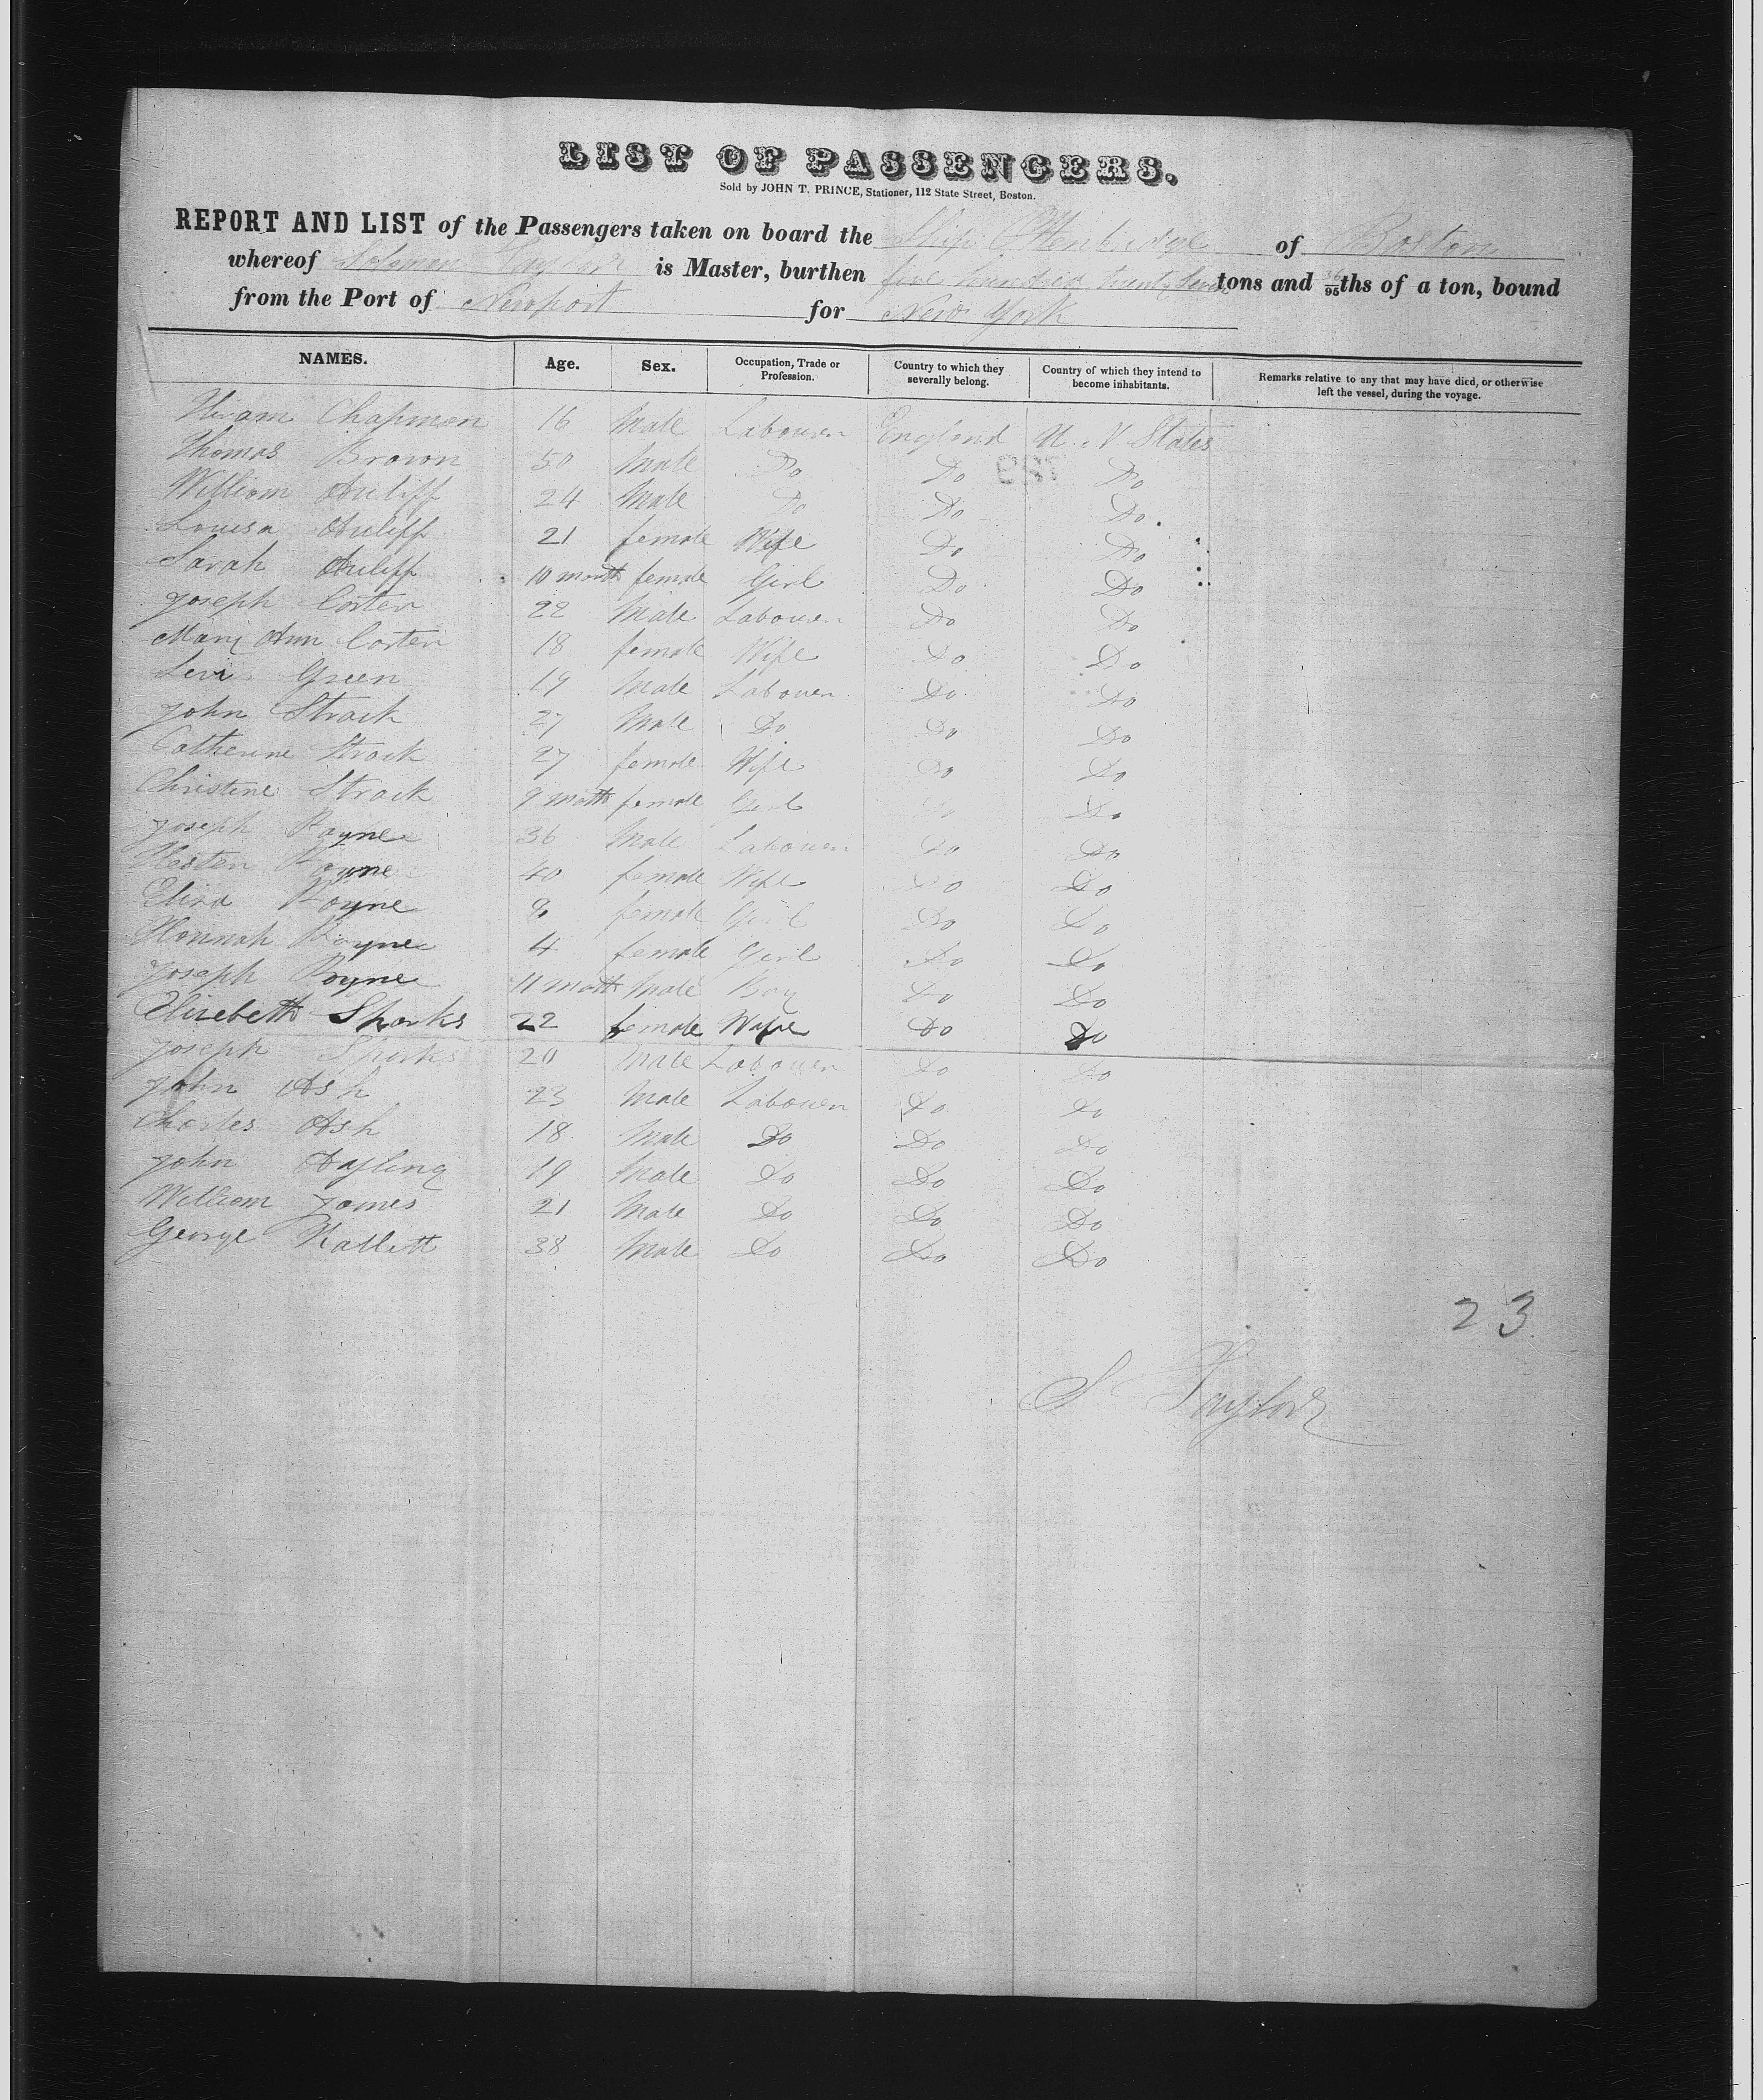 LIST OF PASSENGERS.
Sold by JOHN T. PRINCE, Stationer, 112 State Street, Boston.
REPORT AND LIST of the Passengers taken on board the Ship of Boston
whereof Solomon Taylor is Master, burthen five hundred twenty seven tons and 36/95ths of a ton, bound
from the Port of Newport for New York
NAMES. Age. Sex. Occupation, Trade or Profession. Country to which they severally belong. Country of which they intend to become inhabitants. Remarks relative to any that may have died, or otherwise left the vessel, during the voyage.
Hiram Chapman 16 Male Labourer England U. States
Thomas Brown 50 Male Do Do Do
William 24 Male Do Do Do
Louisa 21 female Wife Do Do
Sarah 10 month female Girl Do Do
Joseph Corter 22 Male Labourer Do Do
Mary Ann Corter 18 female Wife Do Do
Levi Green 19 Male Labourer Do Do
John Strack 27 Male Do Do Do
Catherine Strack 27 female Wife Do Do
Christine Strack 9 month female Girl Do Do
Joseph Payne 36 Male Labourer Do Do
Hester Payne 40 female Wife Do Do
Eliza Payne 8 female Girl Do Do
Hannah Payne 4 female Girl Do Do
Joseph Payne 11 month Male Boy Do Do
Elizebeth Sparks 22 female Wife Do Do
Joseph Sparks 20 Male Labourer Do Do
John Ash 23 Male Labourer Do Do
Charles Ash 18 Male Do Do Do
John 19 Male Do Do Do
William James 21 Male Do Do Do
George Kallett 38 Male Do Do Do
23
S Taylor